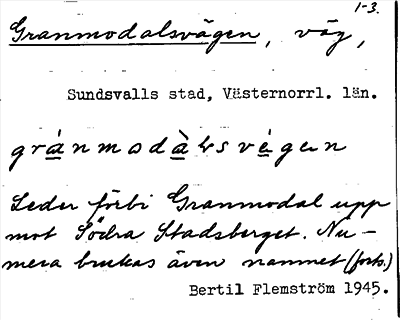 1-3.
Granmodalsvägen, väg,
Sundsvalls stad, Västernorrl. län.
Leder förbi Granmodal upp
mot Södra Stadsberget. Nu-
mera brukas även namnet (forts.)
Bertil Flemström 1945.